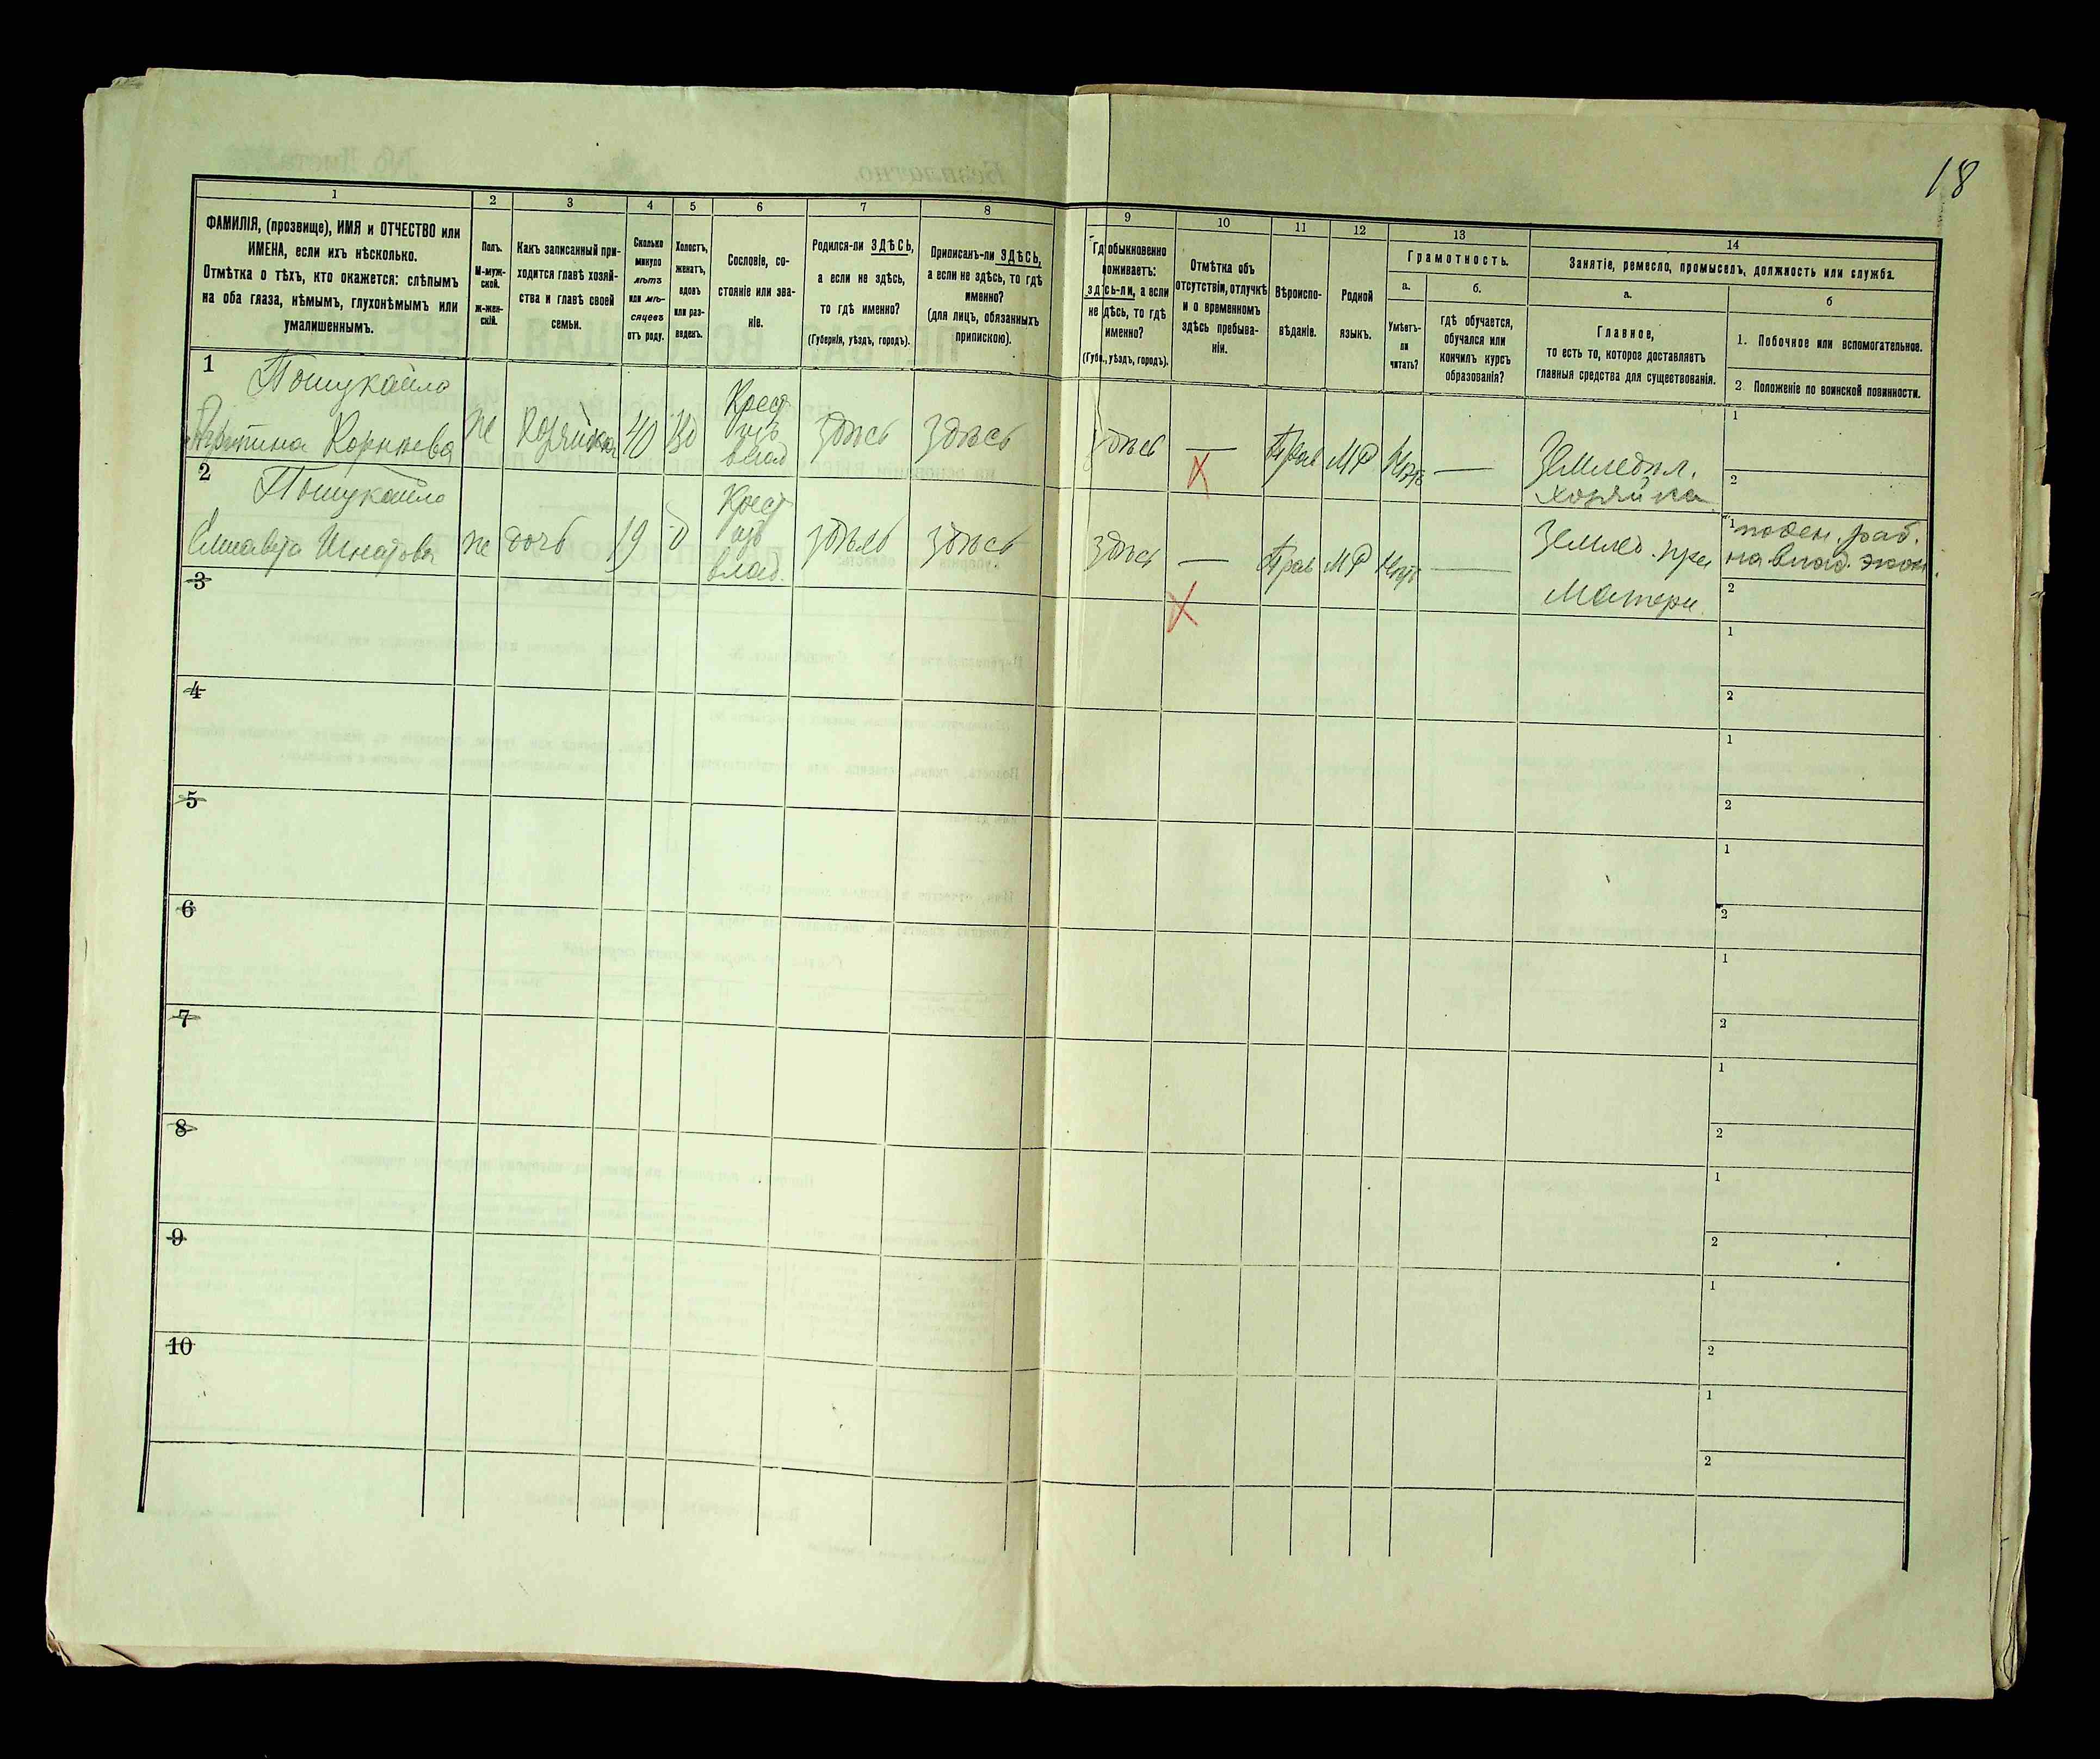 18
1 2 3 4 5 6 7 8 9 10 11 12 13 14
ФАМИЛІЯ, (прозвище), ИМЯ и ОТЧЕСТВО или
ИМЕНА, если ихъ нѣсколько.
Отмѣтка о тѣхъ, кто окажется: слѣпымъ
на оба глаза, нѣмымъ, глухонѣмымъ или
умалишеннымъ.
Полъ.
М-муж-
ской.
Ж-жен-
скій.
Какъ записанный при-
ходится главѣ хозяй-
ства и главѣ своей
семьи.
Сколько
минуло
лѣтъ
или мѣ-
сяцевъ
отъ роду.
Холостъ,
женатъ,
вдовъ
или раз-
веденъ.
Сословіе, со-
стояніе или зва-
ніе.
Родился-ли ЗДѢСЬ,
а если не здѣсь,
то гдѣ именно?
(Губернія, уѣздъ, городъ).
Приписанъ-ли ЗДѢСЬ,
а если не здѣсь, то гдѣ
именно?
(для лицъ, обязанныхъ
припискою).
Гдѣ обыкновенно
проживаетъ:
здѣсь-ли, а если
не здѣсь, то гдѣ
именно?
(Губ., уѣздъ, городъ).
Отмѣтка объ
отсутствіи, отлучкѣ
и о временномъ
здѣсь пребыва-
ніи.
Вѣроиспо-
вѣданіе.
Родной
языкъ.
Грамотность.
а.
Умѣетъ-
ли
читать?
б.
гдѣ обучается,
обучался или
кончилъ курсъ
образованія?
Занятіе, ремесло, промыселъ, должность или служба.
а.
Главное,
то есть то, которое доставляетъ
главныя средства для существованія.
б
1. Побочное или вспомогательное.
2. Положеніе по воинской повинности.
1 Пошукайло
Корнѣева
ж
Хозяйка
40
вд
Крест
изъ
влад
здѣсь
здѣсь
здѣсь
—
Прав
МР
Нѣтъ
—
Земледѣл.
хозяйка
1
2
2 Пошукайло
Елисавета Игнатова
ж
дочь
19
д
Крест
изъ
влад.
здѣсь
здѣсь
здѣсь
—
Прав
МР
Нѣтъ
—
Землед. при
Матери
1 поден. раб.
на влад. экон.
2
3
1
2
4
1
2
5
1
2
6
1
2
7
1
2
8
1
2
9
1
2
10
1
2